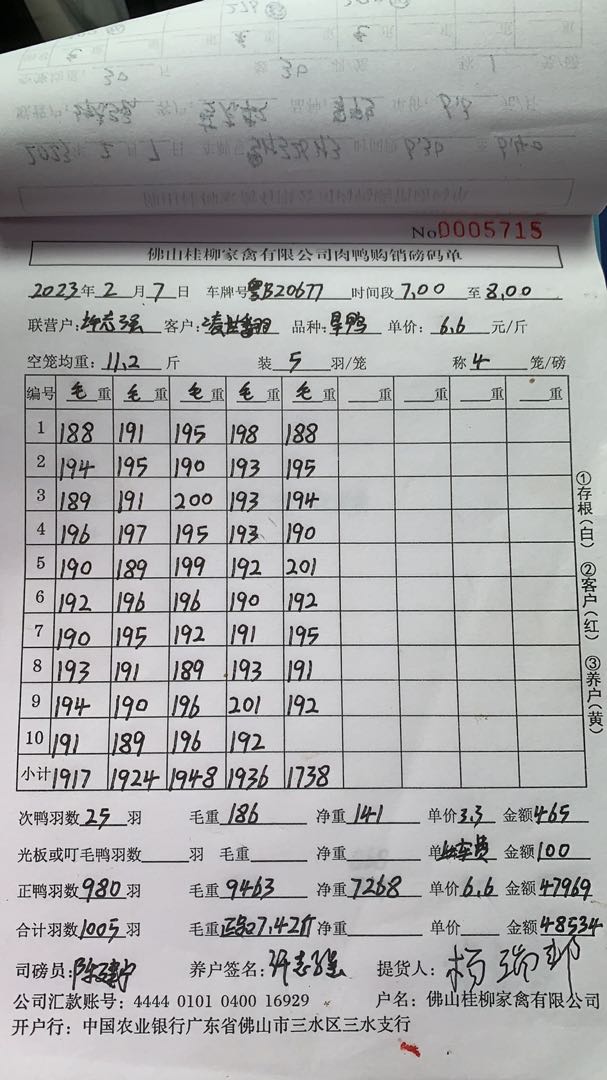 No 0005715
佛山桂柳家禽有限公司肉鸭购销磅码单
2023年2月7日 车牌号粤B20677 时间段7,00至8,00
联营户:许志强 客户: 品种:旱鸭 单价:6.6元/斤
空笼均重:11.2斤 装5羽/笼 称4笼/磅
编号 毛重 毛重 毛重 毛重 毛重 重 重 重 重
1 188 191 195 198 188
2 194 195 190 193 195
3 189 191 200 193 194
4 196 197 195 193 190
5 190 189 199 192 201
6 192 196 196 190 192
7 190 195 192 191 195
8 193 191 189 193 191
9 194 190 196 201 192
10 191 189 196 192
小计 1917 1924 1948 1936 1738
①存根(白) ②客户(红) ③养户(黄)
次鸭羽数25羽 毛重186 净重141 单价3.3 金额465
光板或叮毛鸭羽数 羽 毛重 净重 单 金额100
正鸭羽数980羽 毛重9463 净重7268 单价6.6 金额47969
合计羽数1005羽 毛重 7.42斤 净重 单价 金额48534
司磅员: 养户签名:许志强 提货人:
公司汇款账号: 4444 0101 0400 16929 户名: 佛山桂柳家禽有限公司
开户行: 中国农业银行广东省佛山市三水区三水支行